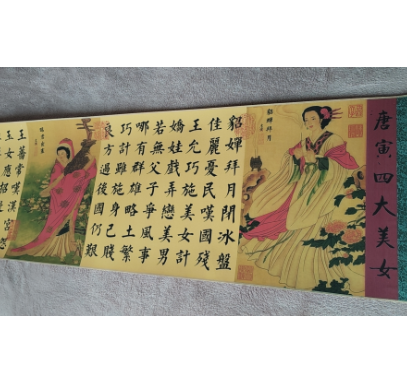 唐寅四大美女
貂蟬拜月
貂嬋拜月冰盤
佳麗憂民嘆國殘
王允巧施美女計
嬌娃戲弄戀美男
若無父子爭風事
哪有群雄略土繁
巧計雖施身己賤
良方過後國仍艱
王薔常嘆漢宮怨
王女應招